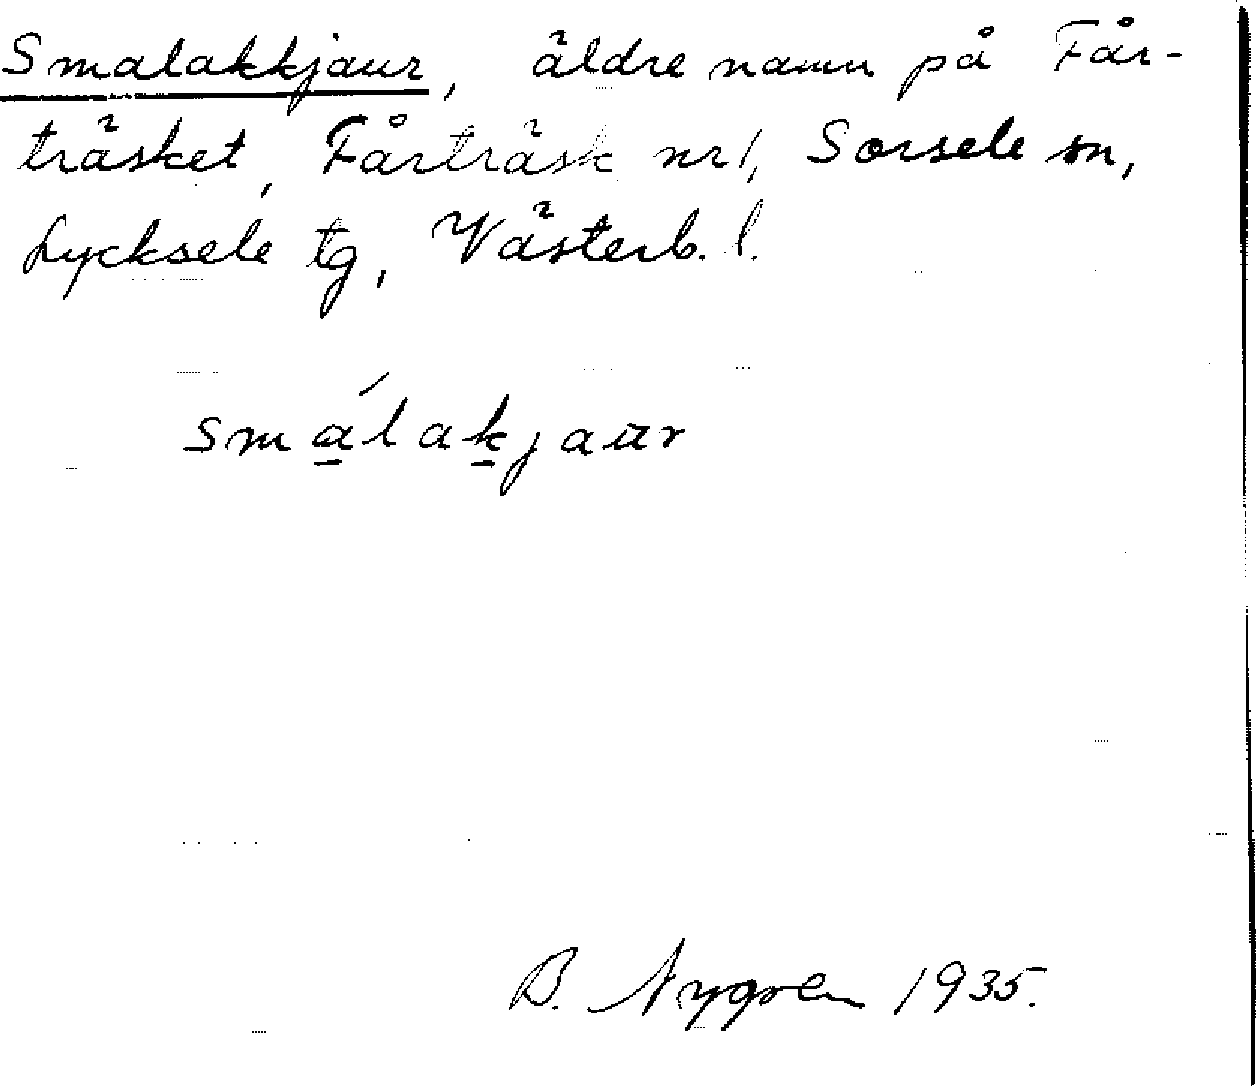 Smalakkjaur, äldre namn på Får-
träsket, Fårträsk nr 1, Sorsele sn,
Lycksele tg, Västerb. l.
smá̱laḵjaur
B. Nygren 1935.